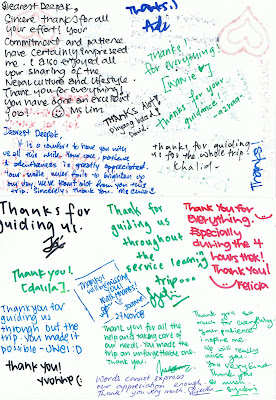 Dearest Deepak,
Sincere thanks for all
your effort! Your
commitment and patience
have certainly impressed
me. I also enjoyed all
your sharing of the
Nepal culture and lifestyle.
Thank you for everything!
You have done an excellent
job! Ms Lim
Thanks!
Thanks
for everything!
Thanks for your
guidance.
THANKS ALOT!
David
thanks for guiding
us for the whole trip.
Dearest Deepak,
It is a comfort to have you with
us all this while. Your care, patience
& attentiveness is greatly appreciated.
Your smile never fails to brighten up
our day. We've learnt alot from you this
trip. Sincerely, Thank you.
Thanks for
guiding us.
Thanks
for
guiding us
throughout
the
service learning
trip...
THANK YOU FOR
EVERYTHING.
Especially
during the 4
hours trek!
Thank You!
Felicia
Thank you!
Thank you for
guiding us
through out the
trip. You made it
possible
thank you!
Yvonne
27 Nov 08
Thank you for all the
help and taking care of
our needs. You made the
trip an unforgettable one.
Thank you.
Thank you
so much
for everything!
Your patience
inspires me.
We all
really
miss
you
so much.
Words cannot express
our appreciation enough.
Thank you very much.